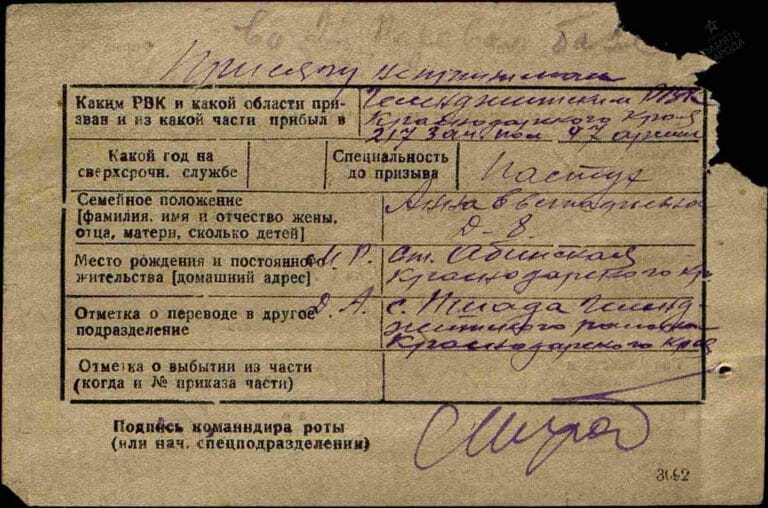 ПАМЯТЬ
НАРОДА
Присягу
Каким РВК и какой области при-
зван и из какой части прибыл в
Геленджикским РВК
Краснодарского края
217 Зап. пол 47 армии
Какой год на
сверхсрочн. службе
Специальность
до призыва
Пастух
Семейное положение
[фамилия, имя и отчество жены,
отца, матери, сколько детей]
Анна
Д - 8
Место рождения и постоянного
жительства [домашний адрес]
М.Р. Ст. Абинская
Краснодарского кр
Отметка о переводе в другое
подразделение
Д.А. с. Пшада Геленд-
жикского района
Краснодарского края
Отметка о выбытии из части
(когда и № приказа части)
Подпись командира роты
(или нач. спецподразделения)
3092